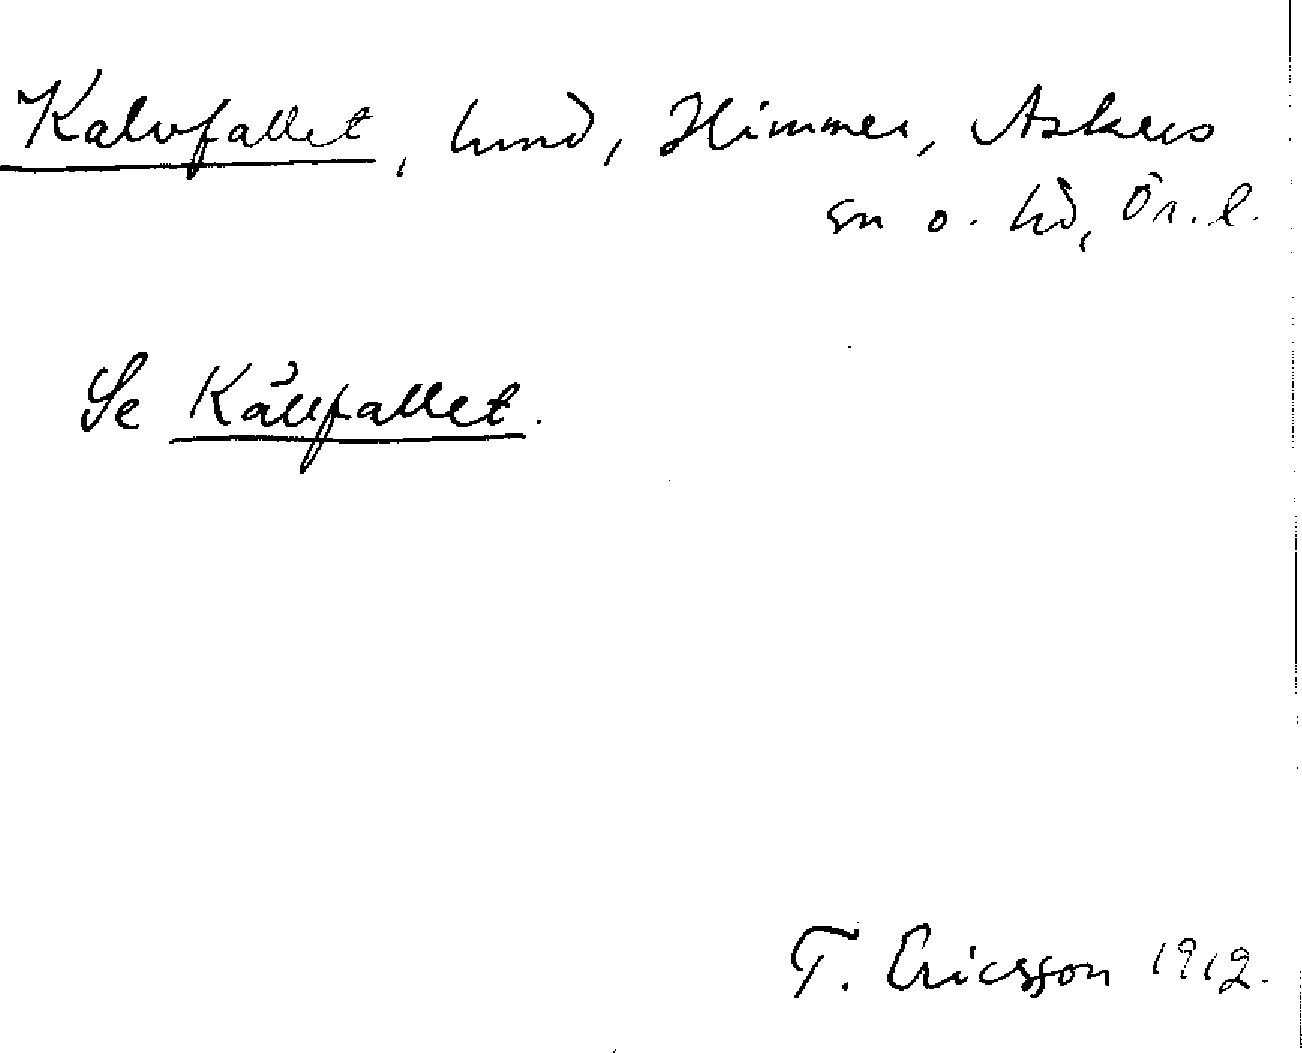 Kalvfallet, lund, Himmer, Askers
sn o. hd, Ör. l.
Se Källfallet.
T. Ericsson 1912.